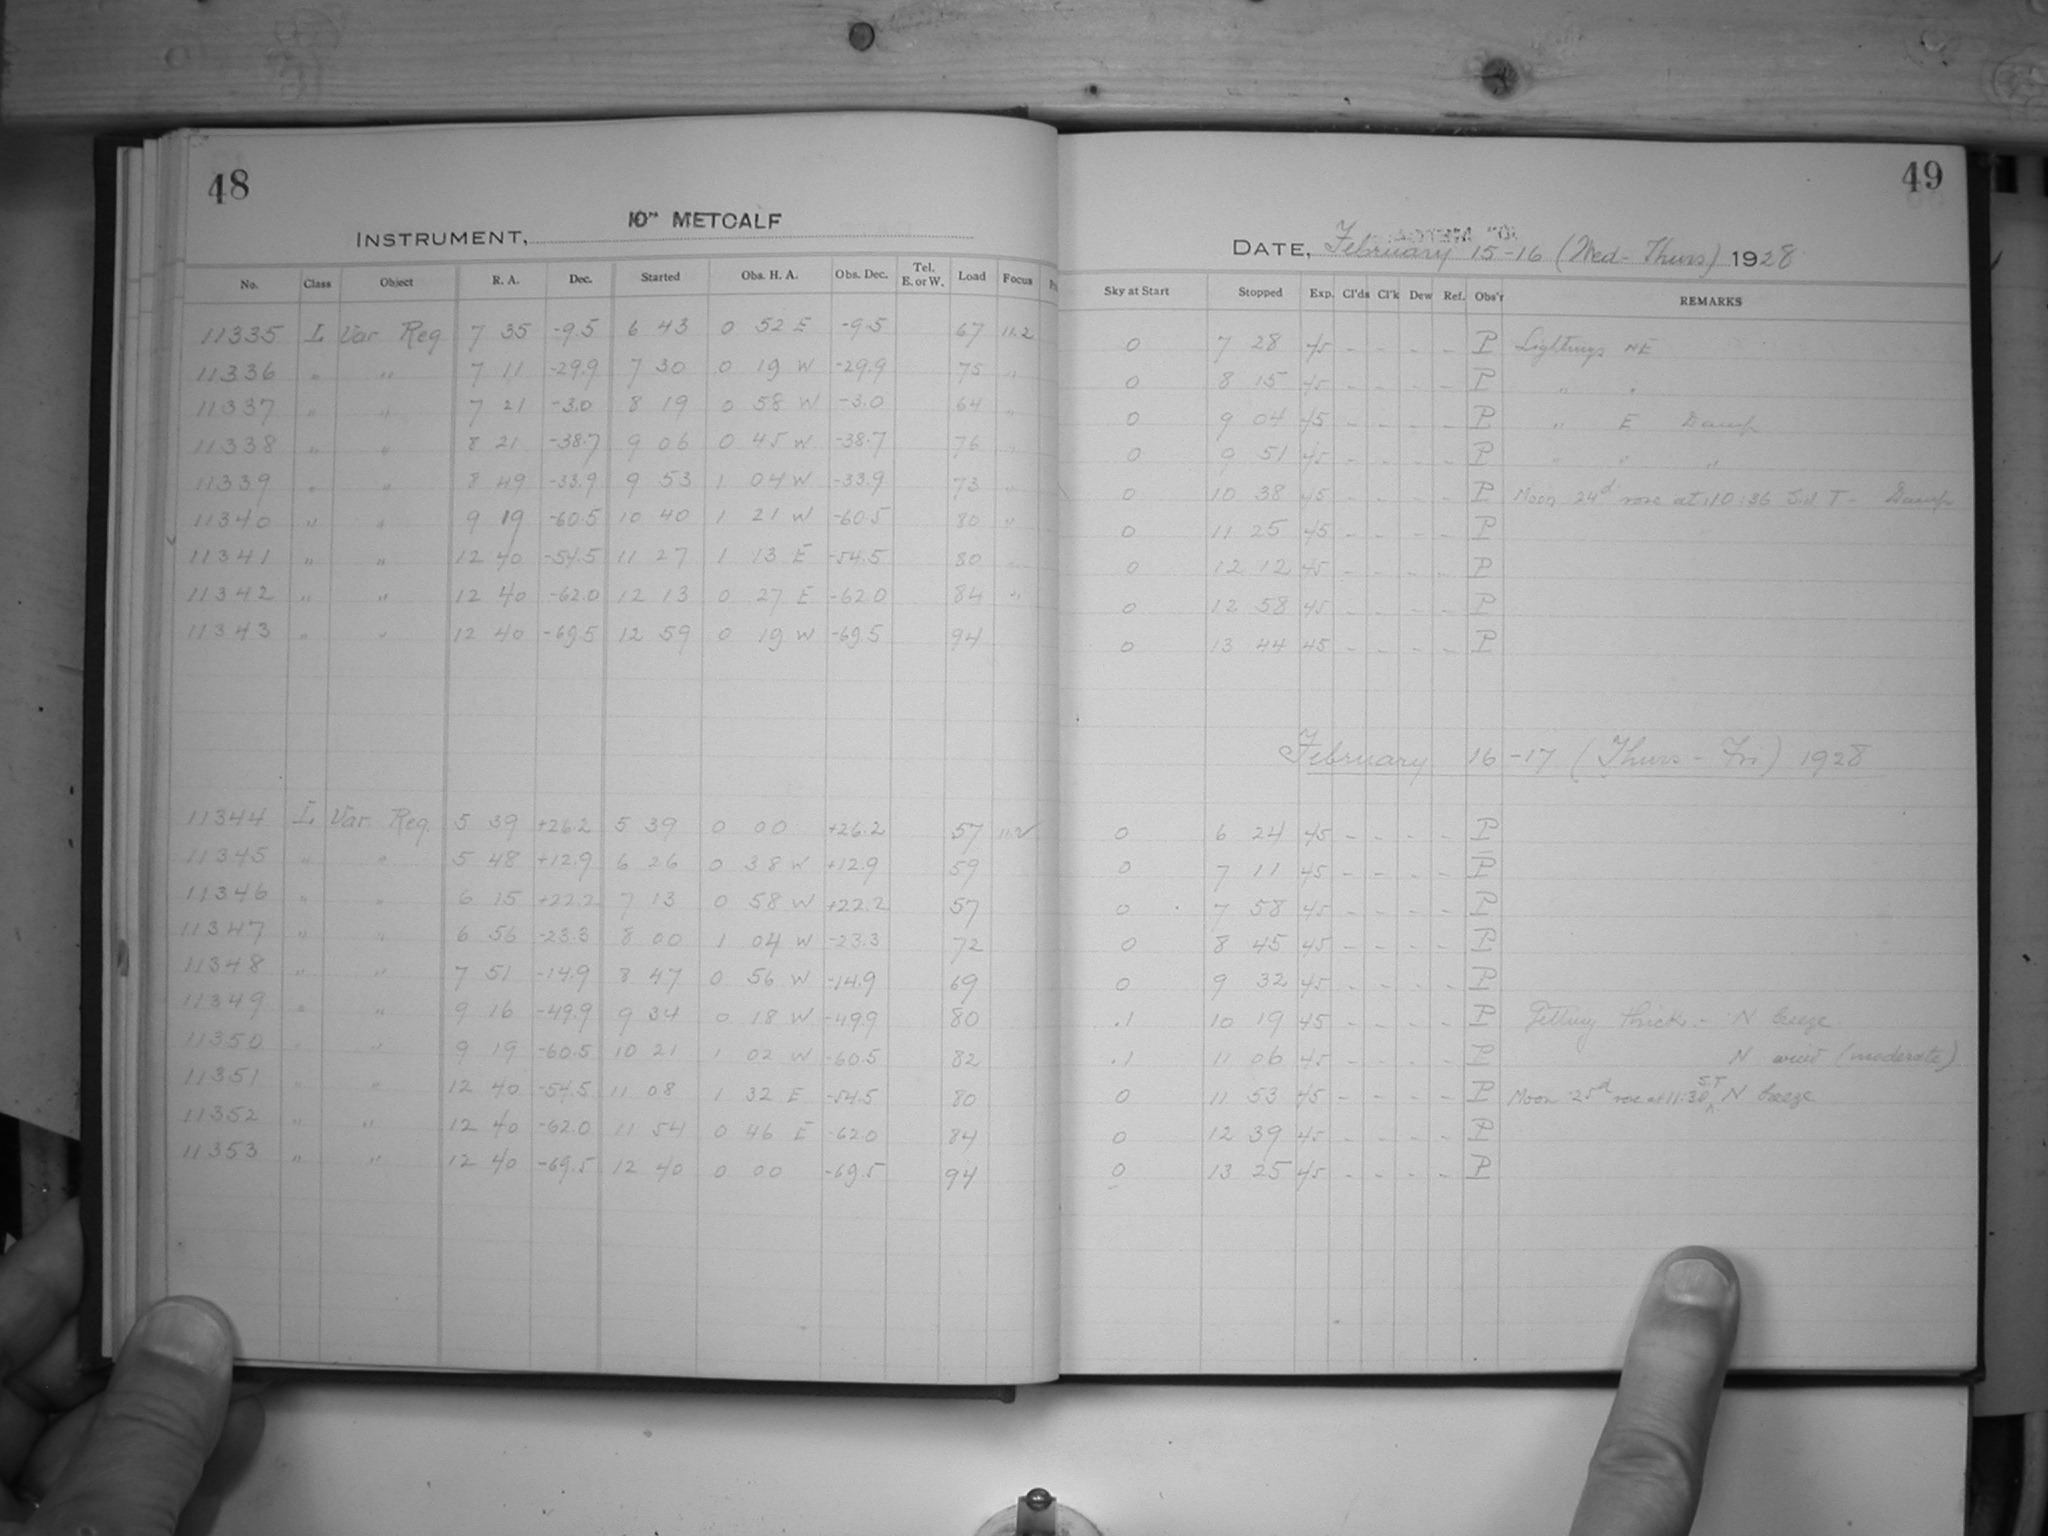 48
INSTRUMENT, 10" METCALF
No. Class Object R. A. Dec. Started Obs. H. A. Obs. Dec. Tel. E. or W. Load Focus
11335 L Var Reg 7 35 -9.5 6 43 0 52 E -9.5 67 11.2
11336 " " 7 11 -29.9 7 30 0 19 W -29.9 75 "
11337 " " 7 21 -3.0 8 19 0 58 W -3.0 64 "
11338 " " 8 21 -38.7 9 06 0 45 W -38.7 76 "
11339 " " 8 49 -33.9 9 53 1 04 W -33.9 73 "
11340 " " 9 19 -60.5 10 40 1 21 W -60.5 80 "
11341 " " 12 40 -54.5 11 27 1 13 E -54.5 80 "
11342 " " 12 40 -62.0 12 13 0 27 E -62.0 84 "
11343 " " 12 40 -69.5 12 59 0 19 W -69.5 94
11344 L Var Reg. 5 39 +26.2 5 39 0 00 +26.2 57 11.2
11345 " " 5 48 +12.9 6 26 0 38 W +12.9 59
11346 " " 6 15 +22.2 7 13 0 58 W +22.2 57
11347 " " 6 56 -23.3 8 00 1 04 W -23.3 72
11348 " " 7 51 -14.9 8 47 0 56 W -14.9 69
11349 " " 9 16 -49.9 9 34 0 18 W -49.9 80
11350 " " 9 19 -60.5 10 21 1 02 W -60.5 82
11351 " " 12 40 -54.5 11 08 1 32 E -54.5 80
11352 " " 12 40 -62.0 11 54 0 46 E -62.0 84
11353 " " 12 40 -69.5 12 40 0 00 -69.5 94
49
DATE, February 15-16 (Wed-Thurs) 1928
Sky at Start Stopped Exp. Cl'ds Cl'k Dew Ref. Obs'r REMARKS
0 7 28 45 - - - - P Lightnings NE
0 8 15 45 - - - - P " "
0 9 04 45 - - - - P " E Damp
0 9 51 45 - - - - P " " "
0 10 38 45 - - - - P Moon 24d rose at 10:36 Sid T - Damp
0 11 25 45 - - - - P
0 12 12 45 - - - - P
0 12 58 45 - - - - P
0 13 44 45 - - - - P
February 16-17 (Thurs-Fri) 1928
0 6 24 45 - - - - P
0 7 11 45 - - - - P
0 7 58 45 - - - - P
0 8 45 45 - - - - P
0 9 32 45 - - - - P
.1 10 19 45 - - - - P Getting thick - N breeze
.1 11 06 45 - - - - P N wind (moderate)
0 11 53 45 - - - - P Moon 25d rose at 11:30 S.T N breeze
0 12 39 45 - - - - P
0 13 25 45 - - - - P